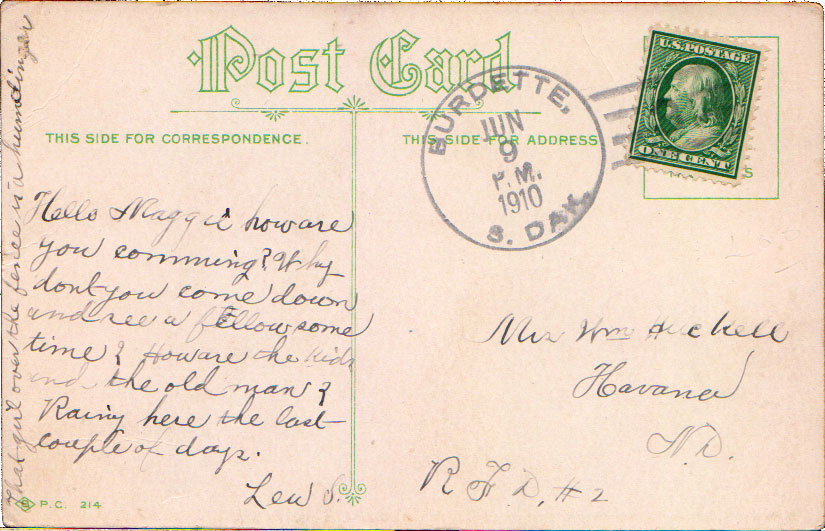 Post Card
THIS SIDE FOR CORRESPONDENCE.
THIS SIDE FOR ADDRESS
BURDETTE,
JUN
9
P.M.
1910
S. DAK.
U.S. POSTAGE
ONE CENT
S
That girl over the fence is a humdinger
Hello Maggie how are
you comming? Why
dont you come down
and see a fellow some
time? How are the kids
and the old man?
Rainy here the last
couple of days.
Lew S.
Mrs Wm Huckell
Havana
N.D.
R F D, # 2
P.C. 214